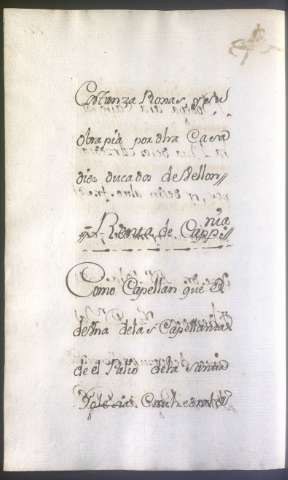 Costanza Ronas, y su
obrapia por otra Casa
dies ducados de Vellon
Renta de Capp.nia
Como Capellán que
de una de las Capellanias
de el Patio de la Santa
Iglesia Cathedral